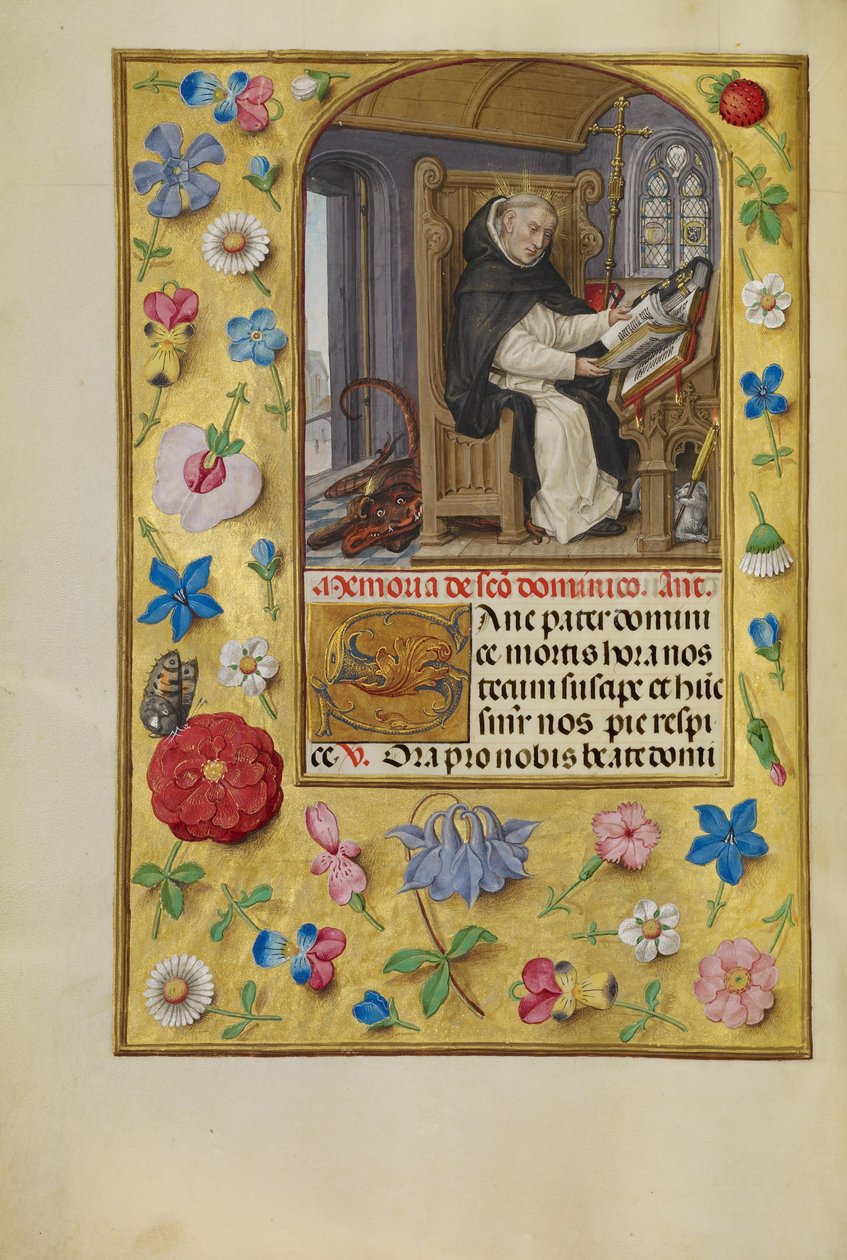 Memoria de sc̄o dominico. Añt.
Sane pater domini
ce mortis hora nos
tecum suscipe et hīc
semp̄ nos pie respi
ce. V. Ora pro nobis beate domi